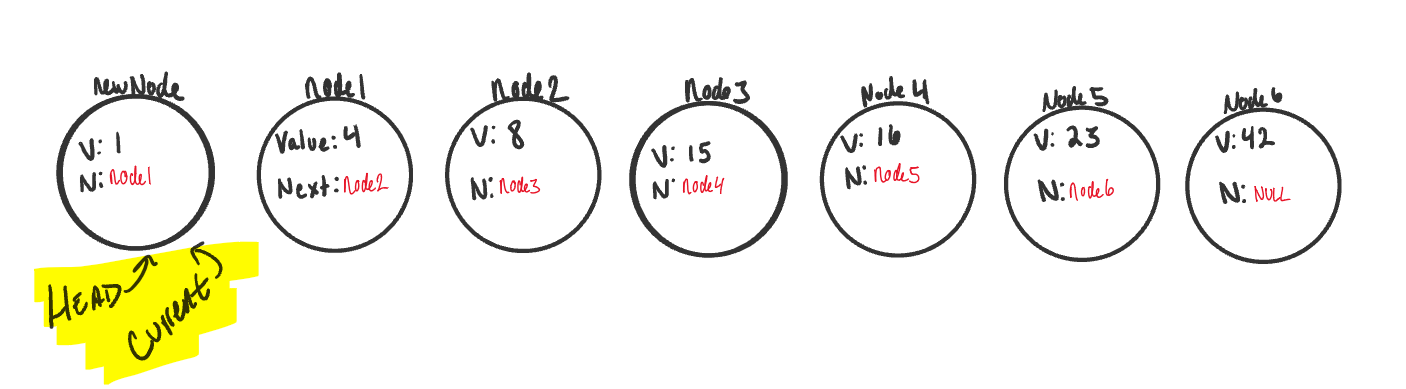 newNode
V: 1
N: node1
node1
Value: 4
Next: node2
node2
V: 8
N: node3
node3
V: 15
N: node4
Node4
V: 16
N: node5
Node5
V: 23
N: node6
Node6
V: 42
N: NULL
HEAD
Current